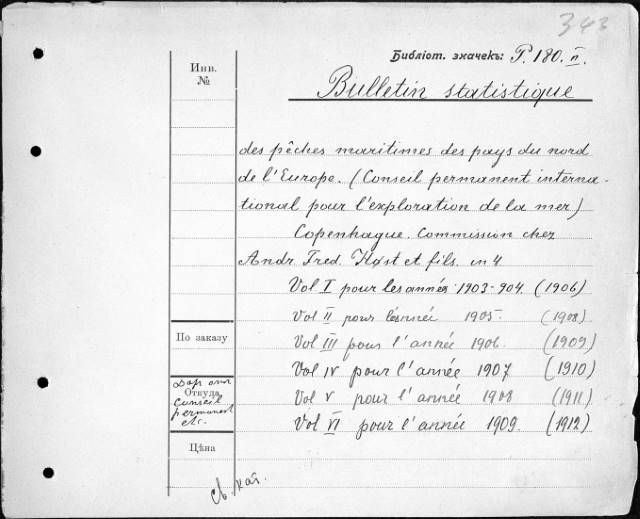 343
Библiот. значекъ: P. 180. n.
Инв.
№
Bulletin statistique
des pêches maritimes des pays du nord
de l'Europe. (Conseil permanent interna-
tional pour l'exploration de la mer)
Copenhague. Commission chez
Andr. Fred. Høst et fils. in 4
Vol I pour les année 1903-904. (1906)
Vol II pour lésnnée 1905. (1908)
По заказу
Vol III pour l'année 1906. (1909)
Vol IV pour l'année 1907 (1910)
Даръ отъ
Откуда
Conseil
permanent
etc.
Vol V pour l'année 1908 (1911)
Vol VI pour l'année 1909. (1912)
Цѣна
св. кат.